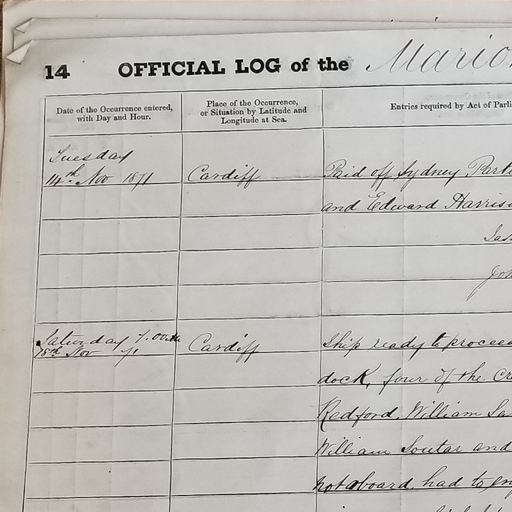 14 OFFICIAL LOG of the Mario
Date of the Occurrence entered,
with Day and Hour.
Place of the Occurrence,
or Situation by Latitude and
Longitude at Sea.
Entries required by Act of Parli
Tuesday
14th Nov 1871
Cardiff
Paid off Sydney Park
and Edward Harris
Jas
Joh
Saturday 7.00
18th Nov 71
Cardiff
Ship ready to proceed
dock, four of the Cr
Redford, William Sa
William Soutar and
not aboard had to en